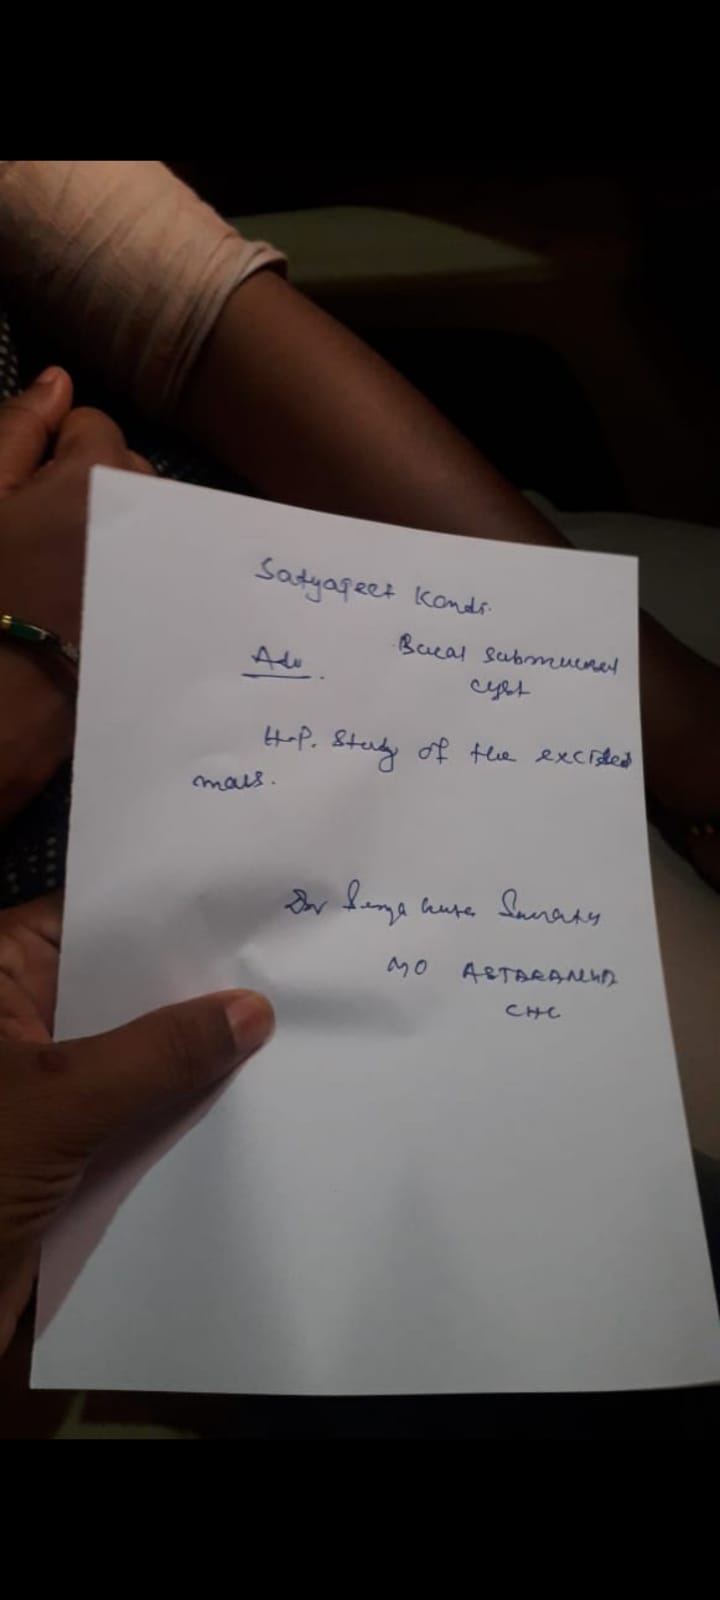 Satyajeet Kandi.
Adv. Bucal submucosal
cyst
H.P. Study of the excised
mass.
Dr
MO ASTARANGA
CHC